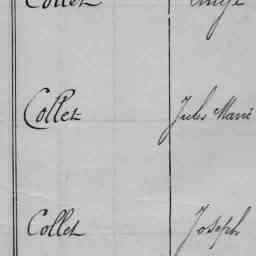 Collet
Collet Jules Marie
Collet Joseph